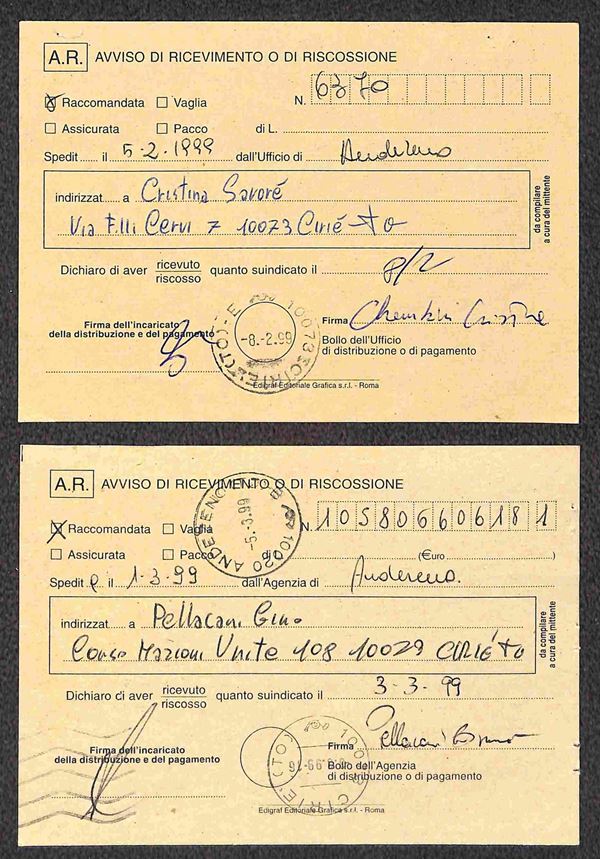 A.R. AVVISO DI RICEVIMENTO O DI RISCOSSIONE
Raccomandata Vaglia N. 6370
Assicurata Pacco di L.
Spedit il 5-2-1999 dall'Ufficio di Andezeno
indirizzat a Cristina Savoré
Via F.lli Cervi 7 10073 Cirié-To
da compilare
a cura del mittente
Dichiaro di aver ricevuto quanto suindicato il 8/2
riscosso
Firma dell'incaricato
della distribuzione e del pagamento
10073 CIRIE' (TO)-E
-8.-2.99
Firma
Bollo dell'Ufficio
di distribuzione o di pagamento
Edigraf Editoriale Grafica s.r.l. - Roma
A.R. AVVISO DI RICEVIMENTO O DI RISCOSSIONE
Raccomandata Vaglia N. 105806606181
Assicurata Pacco di (€uro
10020 ANDEZENO
-5.-3.99
Spedit o il 1-3-99 dall'Agenzia di Andezeno.
indirizzat a Pellacani Gino
Corso Nazioni Unite 108 10029 CIRIÉ To
da compilare
a cura del mittente
Dichiaro di aver ricevuto quanto suindicato il 3-3-99
riscosso
Firma dell'incaricato
della distribuzione e del pagamento
CIRIE' (TO)
Firma Pellacani
Bollo dell'Agenzia
di distribuzione o di pagamento
Edigraf Editoriale Grafica s.r.l. - Roma